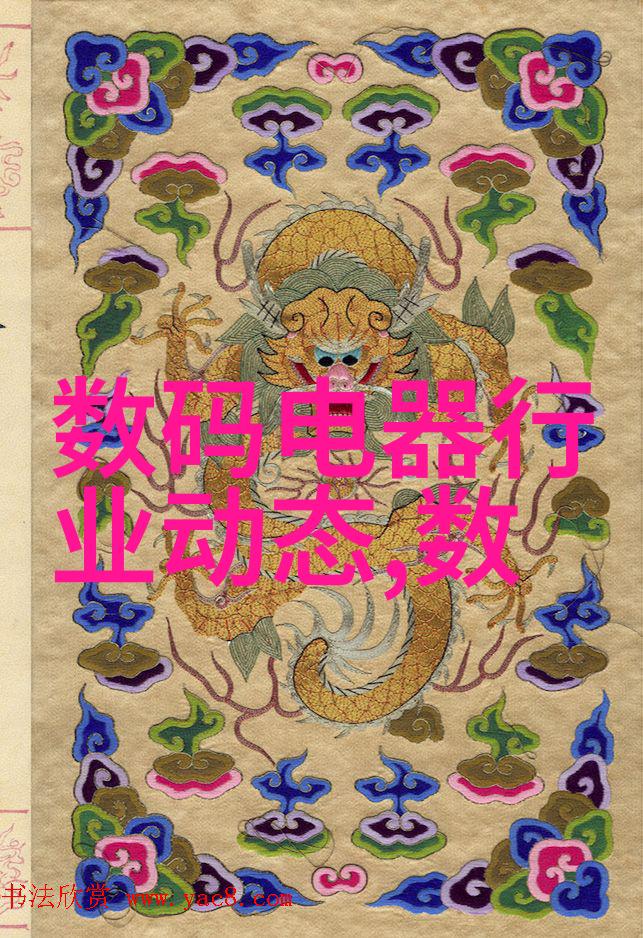 数码电器行
业动态,数
书法欣赏 www.yac8.com